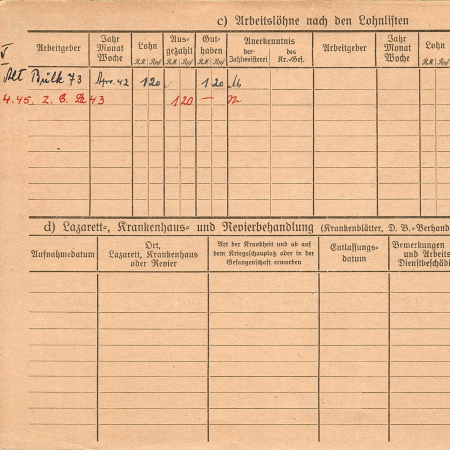 c) Arbeitslöhne nach den Lohnlisten
Arbeitgeber
Jahr Monat Woche
Lohn
Aus- gezahlt
Gut- haben
Anerkenntnis
Arbeitgeber
Jahr Monat Woche
Lohn
RM Rpf
RM Rpf
RM Rpf
der Zahlmeisterei
des Kr.-Gef.
RM Rpf
V
Alt Bülk 73 Apr. 42 1 20 1 20
4.45. Z. B. 43 1 20 —
d) Lazarett-, Krankenhaus- und Revierbehandlung (Krankenblätter, D. B.-Verhand
Aufnahmedatum
Ort, Lazarett, Krankenhaus oder Revier
Art der Krankheit und ob auf dem Kriegsschauplatz oder in der Gefangenschaft erworben
Entlassungs- datum
Bemerkungen und Arbeits Dienstbeschädi